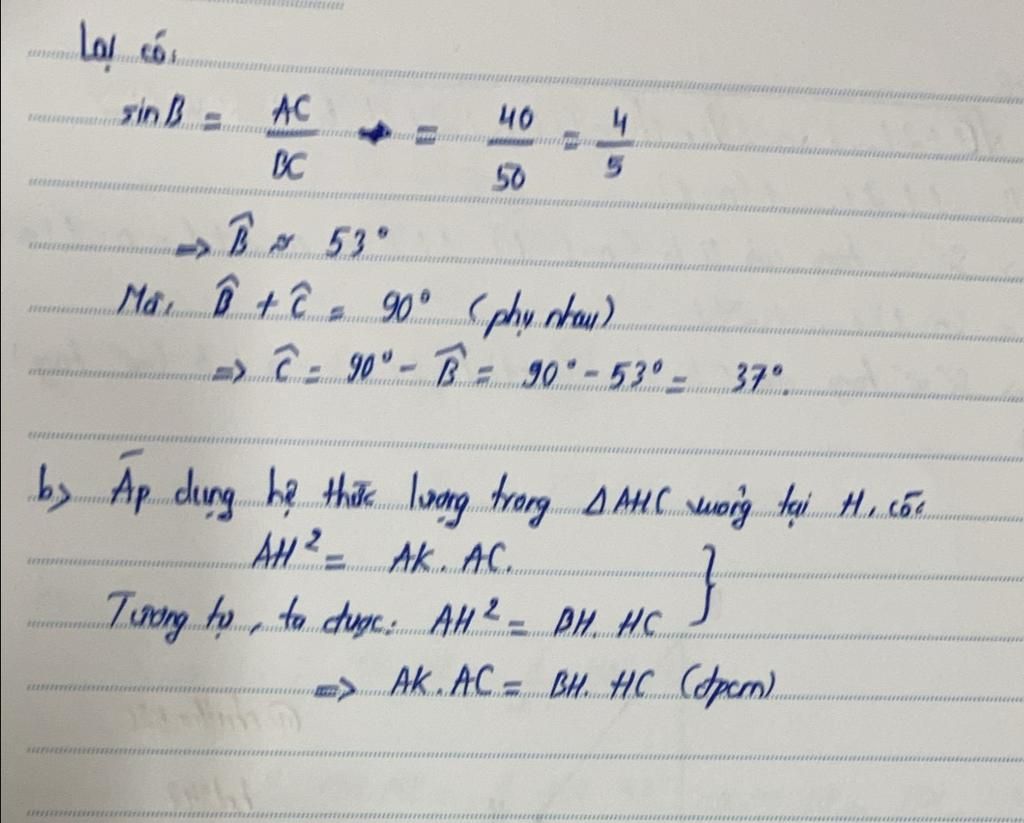 Lại có:
sinB = AC/BC = 40/50 = 4/5
⇒ B̂ ≈ 53°
Mà: B̂ + Ĉ = 90° (phụ nhau)
⇒ Ĉ = 90° - B̂ = 90° - 53° = 37°.
b> Áp dụng hệ thức lượng trong ΔAHC vuông tại H, có:
AH² = AK. AC.
Tương tự, ta được: AH² = BH. HC
⇒ AK. AC = BH. HC (đpcm)